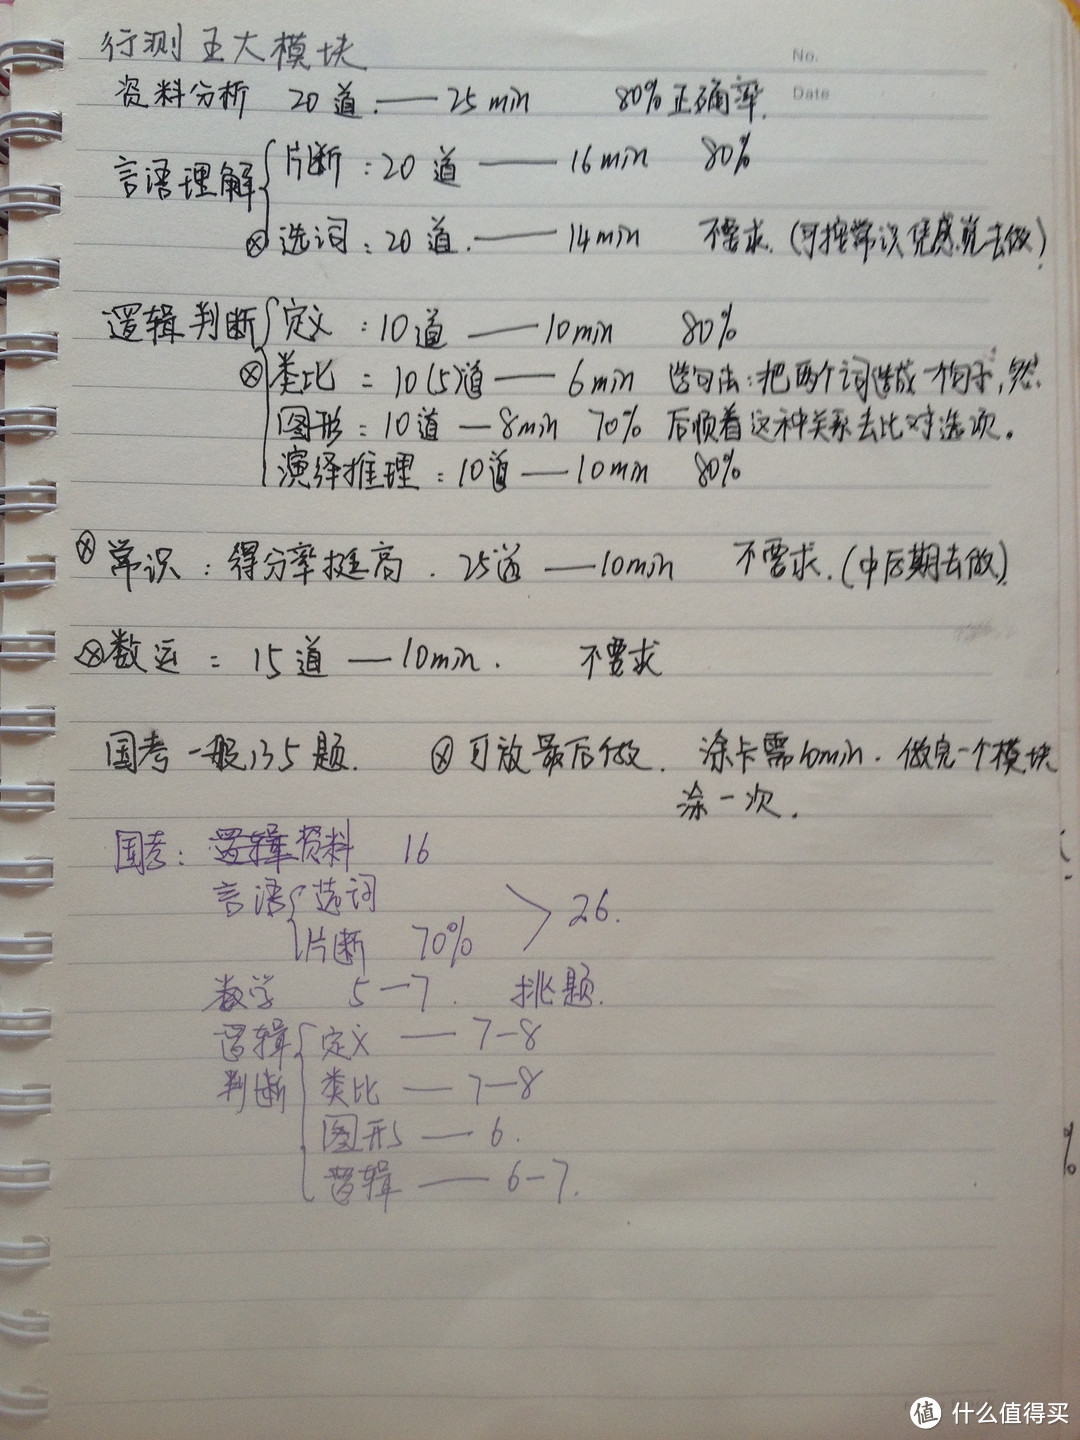 No.
Date
行测五大模块
资料分析 20道.——25min 80%正确率.
言语理解 片断:20道——16min 80%
⊗选词:20道.——14min 不要求.(可按常识凭感觉去做)
逻辑判断 定义:10道——10min 80%
⊗类比:10(5)道——6min 造句法:把两个词造成一个句子,然
图形:10道—8min 70% 后顺着这种关系去比对选项。
演绎推理:10道——10min 80%
⊗常识:得分率挺高.25道——10min 不要求.(中后期去做)
⊗数运:15道——10min. 不要求
国考一般135题. ⊗可放最后做. 涂卡需10min.做完一个模块
涂一次.
国考: 逻辑资料 16
言语 选词 26.
片断 70%
数学 5—7. 挑题.
逻辑 定义——7-8
判断 类比——7-8
图形——6.
逻辑——6-7.
%
值 什么值得买